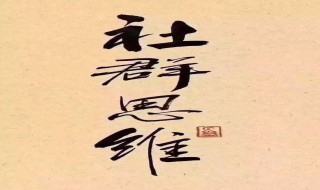 社群思维